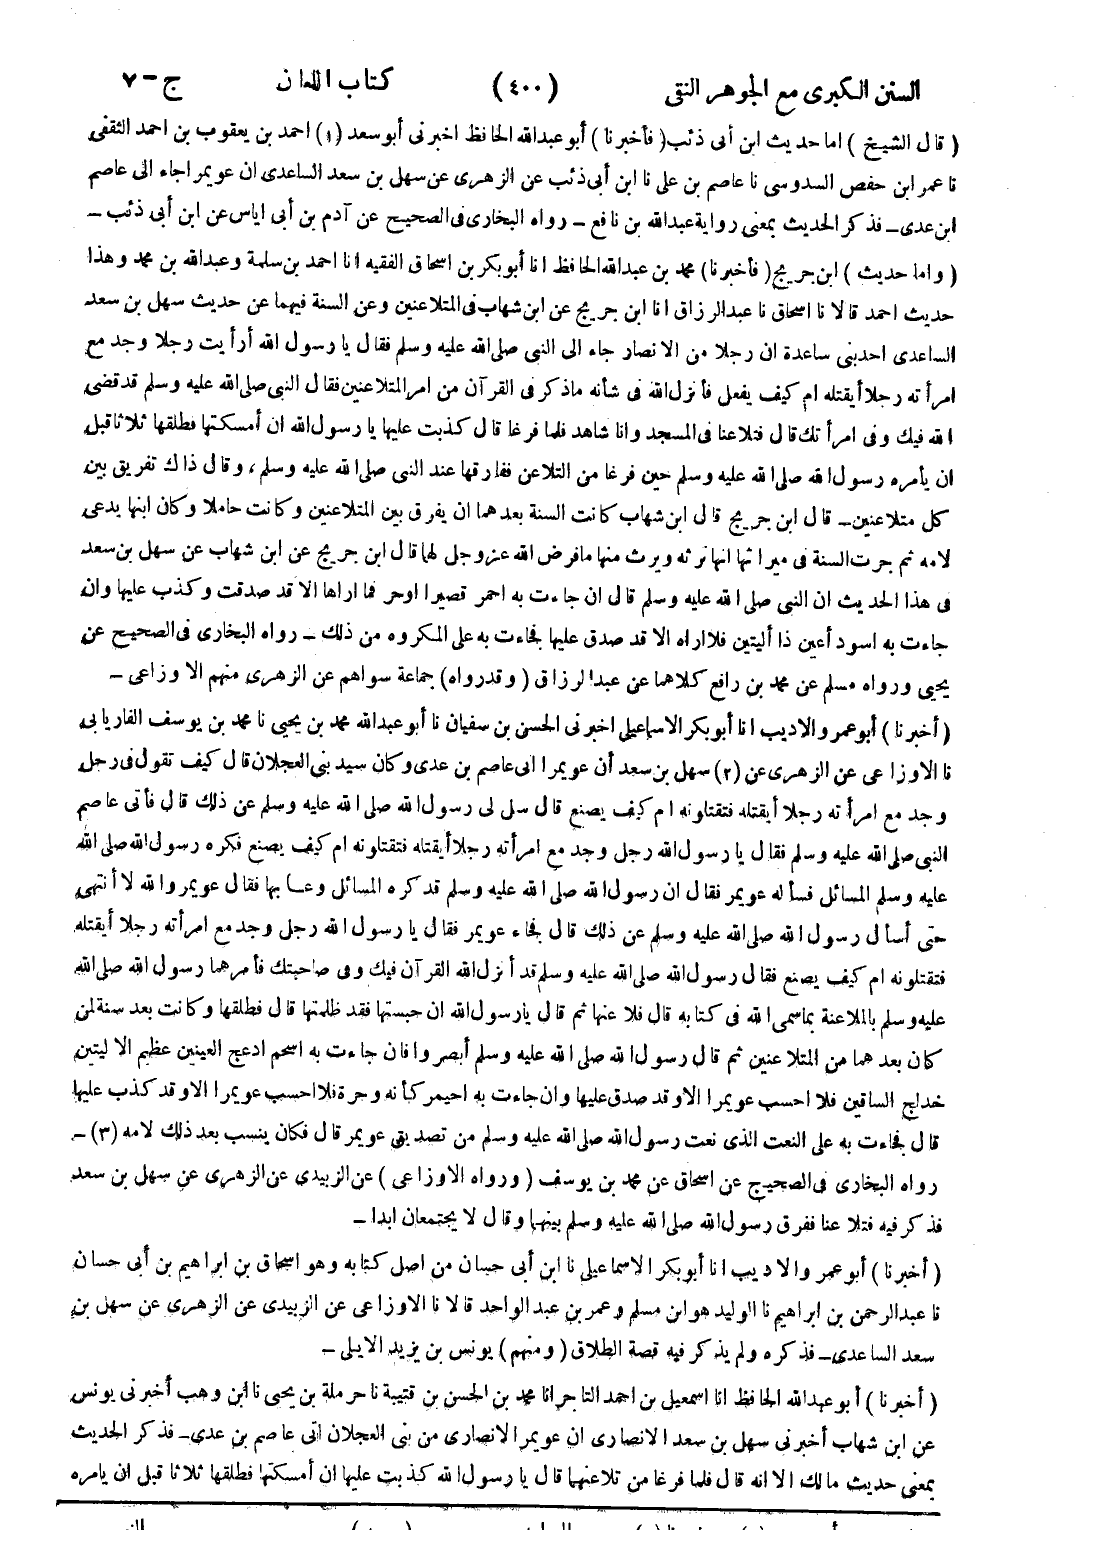 السنن الكبرى مع الجوهر النقى (٤٠٠) كتاب اللعان ج-٧
( قال الشيخ ) اما حديث ابن أبى ذئب ( فأخبرنا ) أبو عبدالله الحافظ اخبرنى أبو سعد (١) احمد بن يعقوب بن احمد الثقفى
نا عمر ابن حفص السدوسى نا عاصم بن على نا ابن أبى ذئب عن الزهرى عن سهل بن سعد الساعدى ان عويمر اجاء الى عاصم
ابن عدى ــ فذكر الحديث بمعنى رواية عبدالله بن نافع ــ رواه البخارى فى الصحيح عن آدم بن أبى اياس عن ابن أبى ذئب ــ
( واما حديث ) ابن جريج ( فأخبرنا ) محمد بن عبدالله الحافظ انا أبو بكر بن اسحاق الفقيه انا احمد بن سلمة وعبدالله بن محمد وهذا
حديث احمد قالا نا اسحاق نا عبدالرزاق انا ابن جريج عن ابن شهاب فى المتلاعنين وعن السنة فيهما عن حديث سهل بن سعد
الساعدى احدبنى ساعدة ان رجلا من الانصار جاء الى النبى صلى الله عليه وسلم فقال يا رسول الله أرأيت رجلا وجد مع
امرأته رجلا أيقتله ام كيف يفعل فأنزل الله فى شأنه ماذكر فى القرآن من امر المتلاعنين فقال النبى صلى الله عليه وسلم قد قضى
الله فيك وفى امرأتك قال فتلاعنا فى المسجد وانا شاهد فلما فرغا قال كذبت عليها يا رسول الله ان أمسكتها فطلقها ثلاثا قبل
ان يأمره رسول الله صلى الله عليه وسلم حين فرغا من التلاعن ففارقها عند النبى صلى الله عليه وسلم ، وقال ذاك تفريق بين
كل متلاعنين ــ قال ابن جريج قال ابن شهاب كانت السنة بعدهما ان يفرق بين المتلاعنين وكانت حاملا وكان ابنها يدعى
لامه ثم جرت السنة فى ميراثها انها ترثه ويرث منها مافرض الله عزوجل لها قال ابن جريج عن ابن شهاب عن سهل بن سعد
فى هذا الحديث ان النبى صلى الله عليه وسلم قال ان جاءت به احمر قصيرا اوحر فما اراها الا قد صدقت وكذب عليها وان
جاءت به اسود أعين ذا أليتين فلا اراه الا قد صدق عليها فجاءت به على المكروه من ذلك ــ رواه البخارى فى الصحيح عن
يحيى ورواه مسلم عن محمد بن رافع كلاهما عن عبدالرزاق ( وقدرواه ) جماعة سواهم عن الزهرى منهم الاوزاعى ــ
( أخبرنا ) أبو عمرو الاديب انا أبو بكر الاسماعيلى اخبرنى الحسن بن سفيان نا أبو عبدالله محمد بن يحيى نا محمد بن يوسف الفاريابى
نا الاوزاعى عن الزهرى عن (٢) سهل بن سعد أن عويمرا اتى عاصم بن عدى وكان سيد بنى العجلان قال كيف تقول فى رجل
وجد مع امرأته رجلا أيقتله فتقتلونه ام كيف يصنع قال سل لى رسول الله صلى الله عليه وسلم عن ذلك قال فأتى عاصم
النبى صلى الله عليه وسلم فقال يا رسول الله رجل وجد مع امرأته رجلا أيقتله فتقتلونه ام كيف يصنع فكره رسول الله صلى الله
عليه وسلم المسائل فسأله عويمر فقال ان رسول الله صلى الله عليه وسلم قد كره المسائل وعابها فقال عويمر والله لا أنتهى
حتى أسأل رسول الله صلى الله عليه وسلم عن ذلك قال فجاء عويمر فقال يا رسول الله رجل وجد مع امرأته رجلا أيقتله
فتقتلونه ام كيف يصنع فقال رسول الله صلى الله عليه وسلم قد أنزل الله القرآن فيك وفى صاحبتك فأمرهما رسول الله صلى الله
عليه وسلم بالملاعنة بماسمى الله فى كتابه قال فلاعنها ثم قال يارسول الله ان حبستها فقد ظلمتها قال فطلقها وكانت بعد سنة لمن
كان بعدهما من المتلاعنين ثم قال رسول الله صلى الله عليه وسلم أبصروا فان جاءت به اسحم ادعج العينين عظيم الاليتين
خدلج الساقين فلا احسب عويمرا الا وقد صدق عليها وان جاءت به احيمر كأنه وحرة فلا احسب عويمرا الا وقد كذب عليها
قال فجاءت به على النعت الذى نعت رسول الله صلى الله عليه وسلم من تصديق عويمر قال فكان ينسب بعد ذلك لامه (٣) ــ
رواه البخارى فى الصحيح عن اسحاق عن محمد بن يوسف ( ورواه الاوزاعى ) عن الزبيدى عن الزهرى عن سهل بن سعد
فذكر فيه فتلاعنا ففرق رسول الله صلى الله عليه وسلم بينهما وقال لا يجتمعان ابدا ــ
( أخبرنا ) أبو عمرو الاديب انا أبو بكر الاسماعيلى نا ابن أبى حسان من اصل كتابه وهو اسحاق بن ابراهيم بن أبى حسان
نا عبدالرحمن بن ابراهيم نا الوليد هو ابن مسلم وعمر بن عبدالواحد قالا نا الاوزاعى عن الزبيدى عن الزهرى عن سهل بن
سعد الساعدى ــ فذكره ولم يذكر فيه قصة الطلاق ( ومنهم ) يونس بن يزيد الايلى ــ
( أخبرنا ) أبو عبدالله الحافظ انا اسمعيل بن احمد التاجر انا محمد بن الحسن بن قتيبة نا حرملة بن يحيى نا ابن وهب أخبرنى يونس
عن ابن شهاب أخبرنى سهل بن سعد الانصارى ان عويمر الانصارى من بنى العجلان اتى عاصم بن عدى ــ فذكر الحديث
بمعنى حديث مالك الا انه قال فلما فرغا من تلاعنهما قال يا رسول الله كذبت عليها ان أمسكتها فطلقها ثلاثا قبل ان يامره